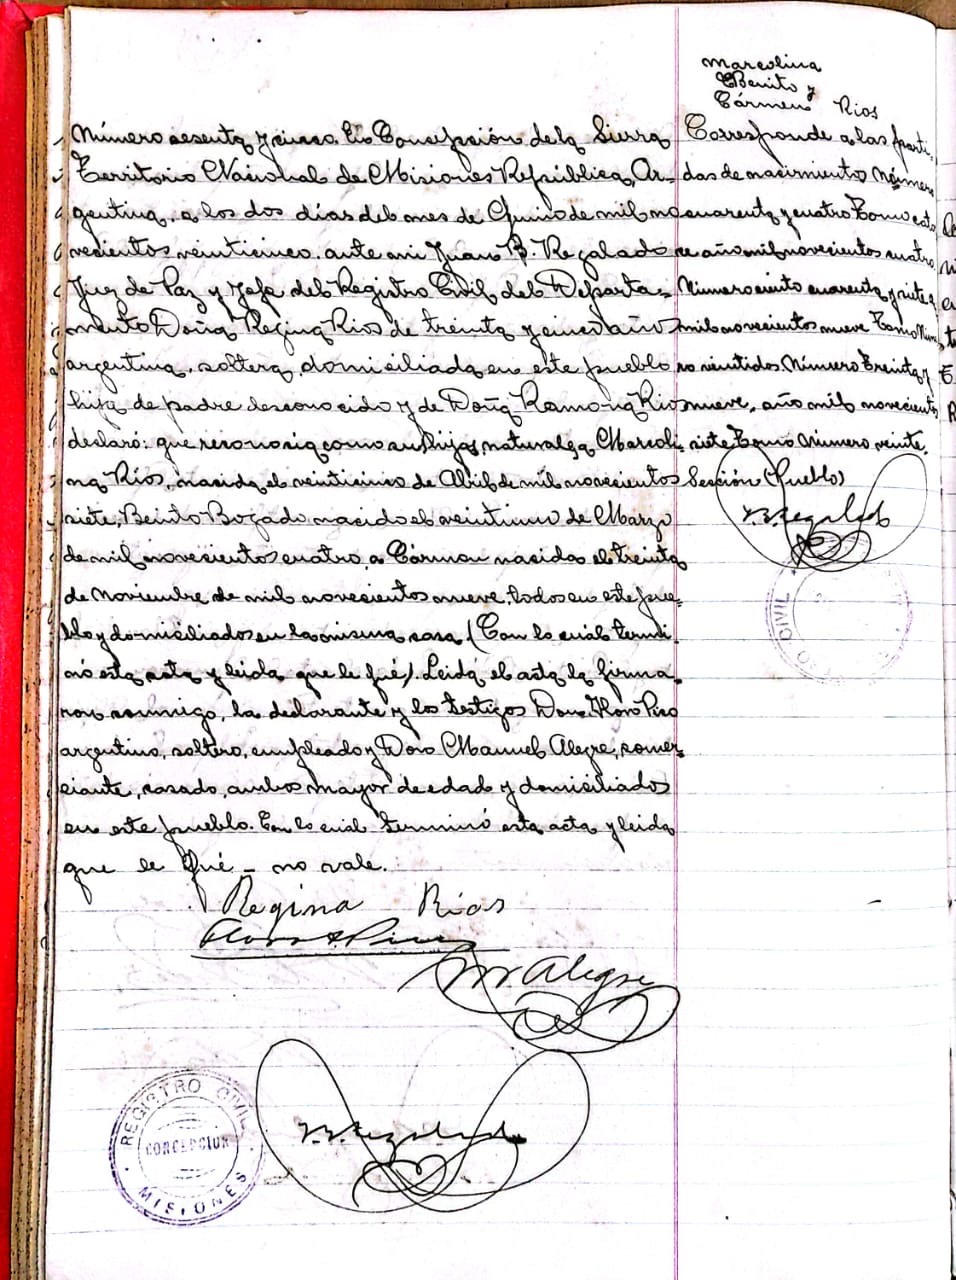 Marcolina
Benito y
Cármen Rios
Número sesenta y cinco. En Concepción de la Sierra
Territorio Nacional de Misiones República, Ar-
gentina, a los dos días del mes de Junio de mil no
vecientos veinticinco. ante mi Juan B. Regalado
Juez de Paz y Jefe del Registro Civil del Departa-
mento Doña Regina Rios de treinta y cinco años
argentina, soltera, domiciliada en este pueblo
hija de padre desconocido y de Doña Ramona Rios
declaró: que reconocia como sus hijos naturales a Marcoli-
na Rios, nacida el veinticinco de Abril de mil novecientos
siete, Benito Bogado nacido el veintiuno de Marzo
de mil novecientos cuatro, a Cármen nacida el treinta
de Noviembre de mil novecientos nueve, todos en este pue-
blo y domiciliados en la misma casa. (Con lo cual termi-
nó esta acta y leida que le fué). Leida el acta la firma-
ron conmigo, la declarante y los testigos Don
argentino, soltero, empleado y Don Manuel Alegre, comer-
ciante, casado, ambos mayor de edad y domiciliados
en este pueblo. Con lo cual terminó esta acta y leida
que le fué - no vale.
Regina Rios
M Alegre
J.B. Regalado
REGISTRO CIVIL
CONCEPCION
MISIONES
Corresponde a las parti-
das de nacimientos Número
cuarenta y cuatro Tomo cato
ce año mil novecientos cuatro
Número ciento cuarenta y siete a
mil novecientos nueve Tomo
ro veintidos Número Treinta y
nueve, año mil novecientos
siete Tomo Número veinte.
Sección (Pueblo)
J.B. Regalado
CIVIL